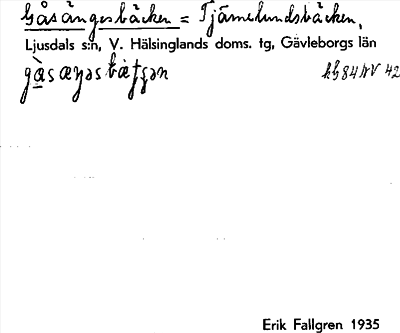 Gåsängesbäcken = Tjärnelundsbäcken,
Ljusdals s:n, V. Hälsinglands doms. tg, Gävleborgs län
Erik Fallgren 1935